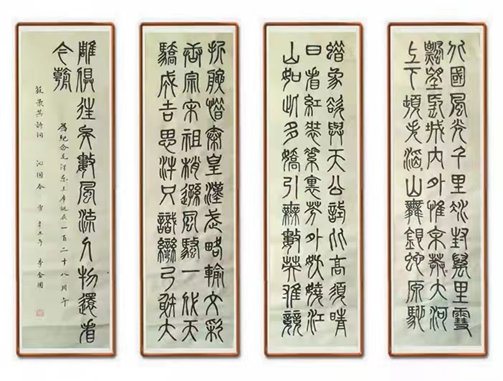 北國風光千里冰封萬里雪
飄望長城內外惟余莽大河
上下頓失滔山舞銀蛇原馳
蠟象欲與天公試比高須晴
日看紅裝素裹分外妖嬈江
山如此多嬌引無數英雄競
折腰惜秦皇漢武略輸文彩
唐宗宋祖稍遜風騷一代天
驕成吉思汗只識彎弓射大
雕俱往矣數風流人物還看
今朝
為紀念毛澤東主席誕辰一百二十八周年
敬錄其詩詞 沁園春 雪 辛丑年